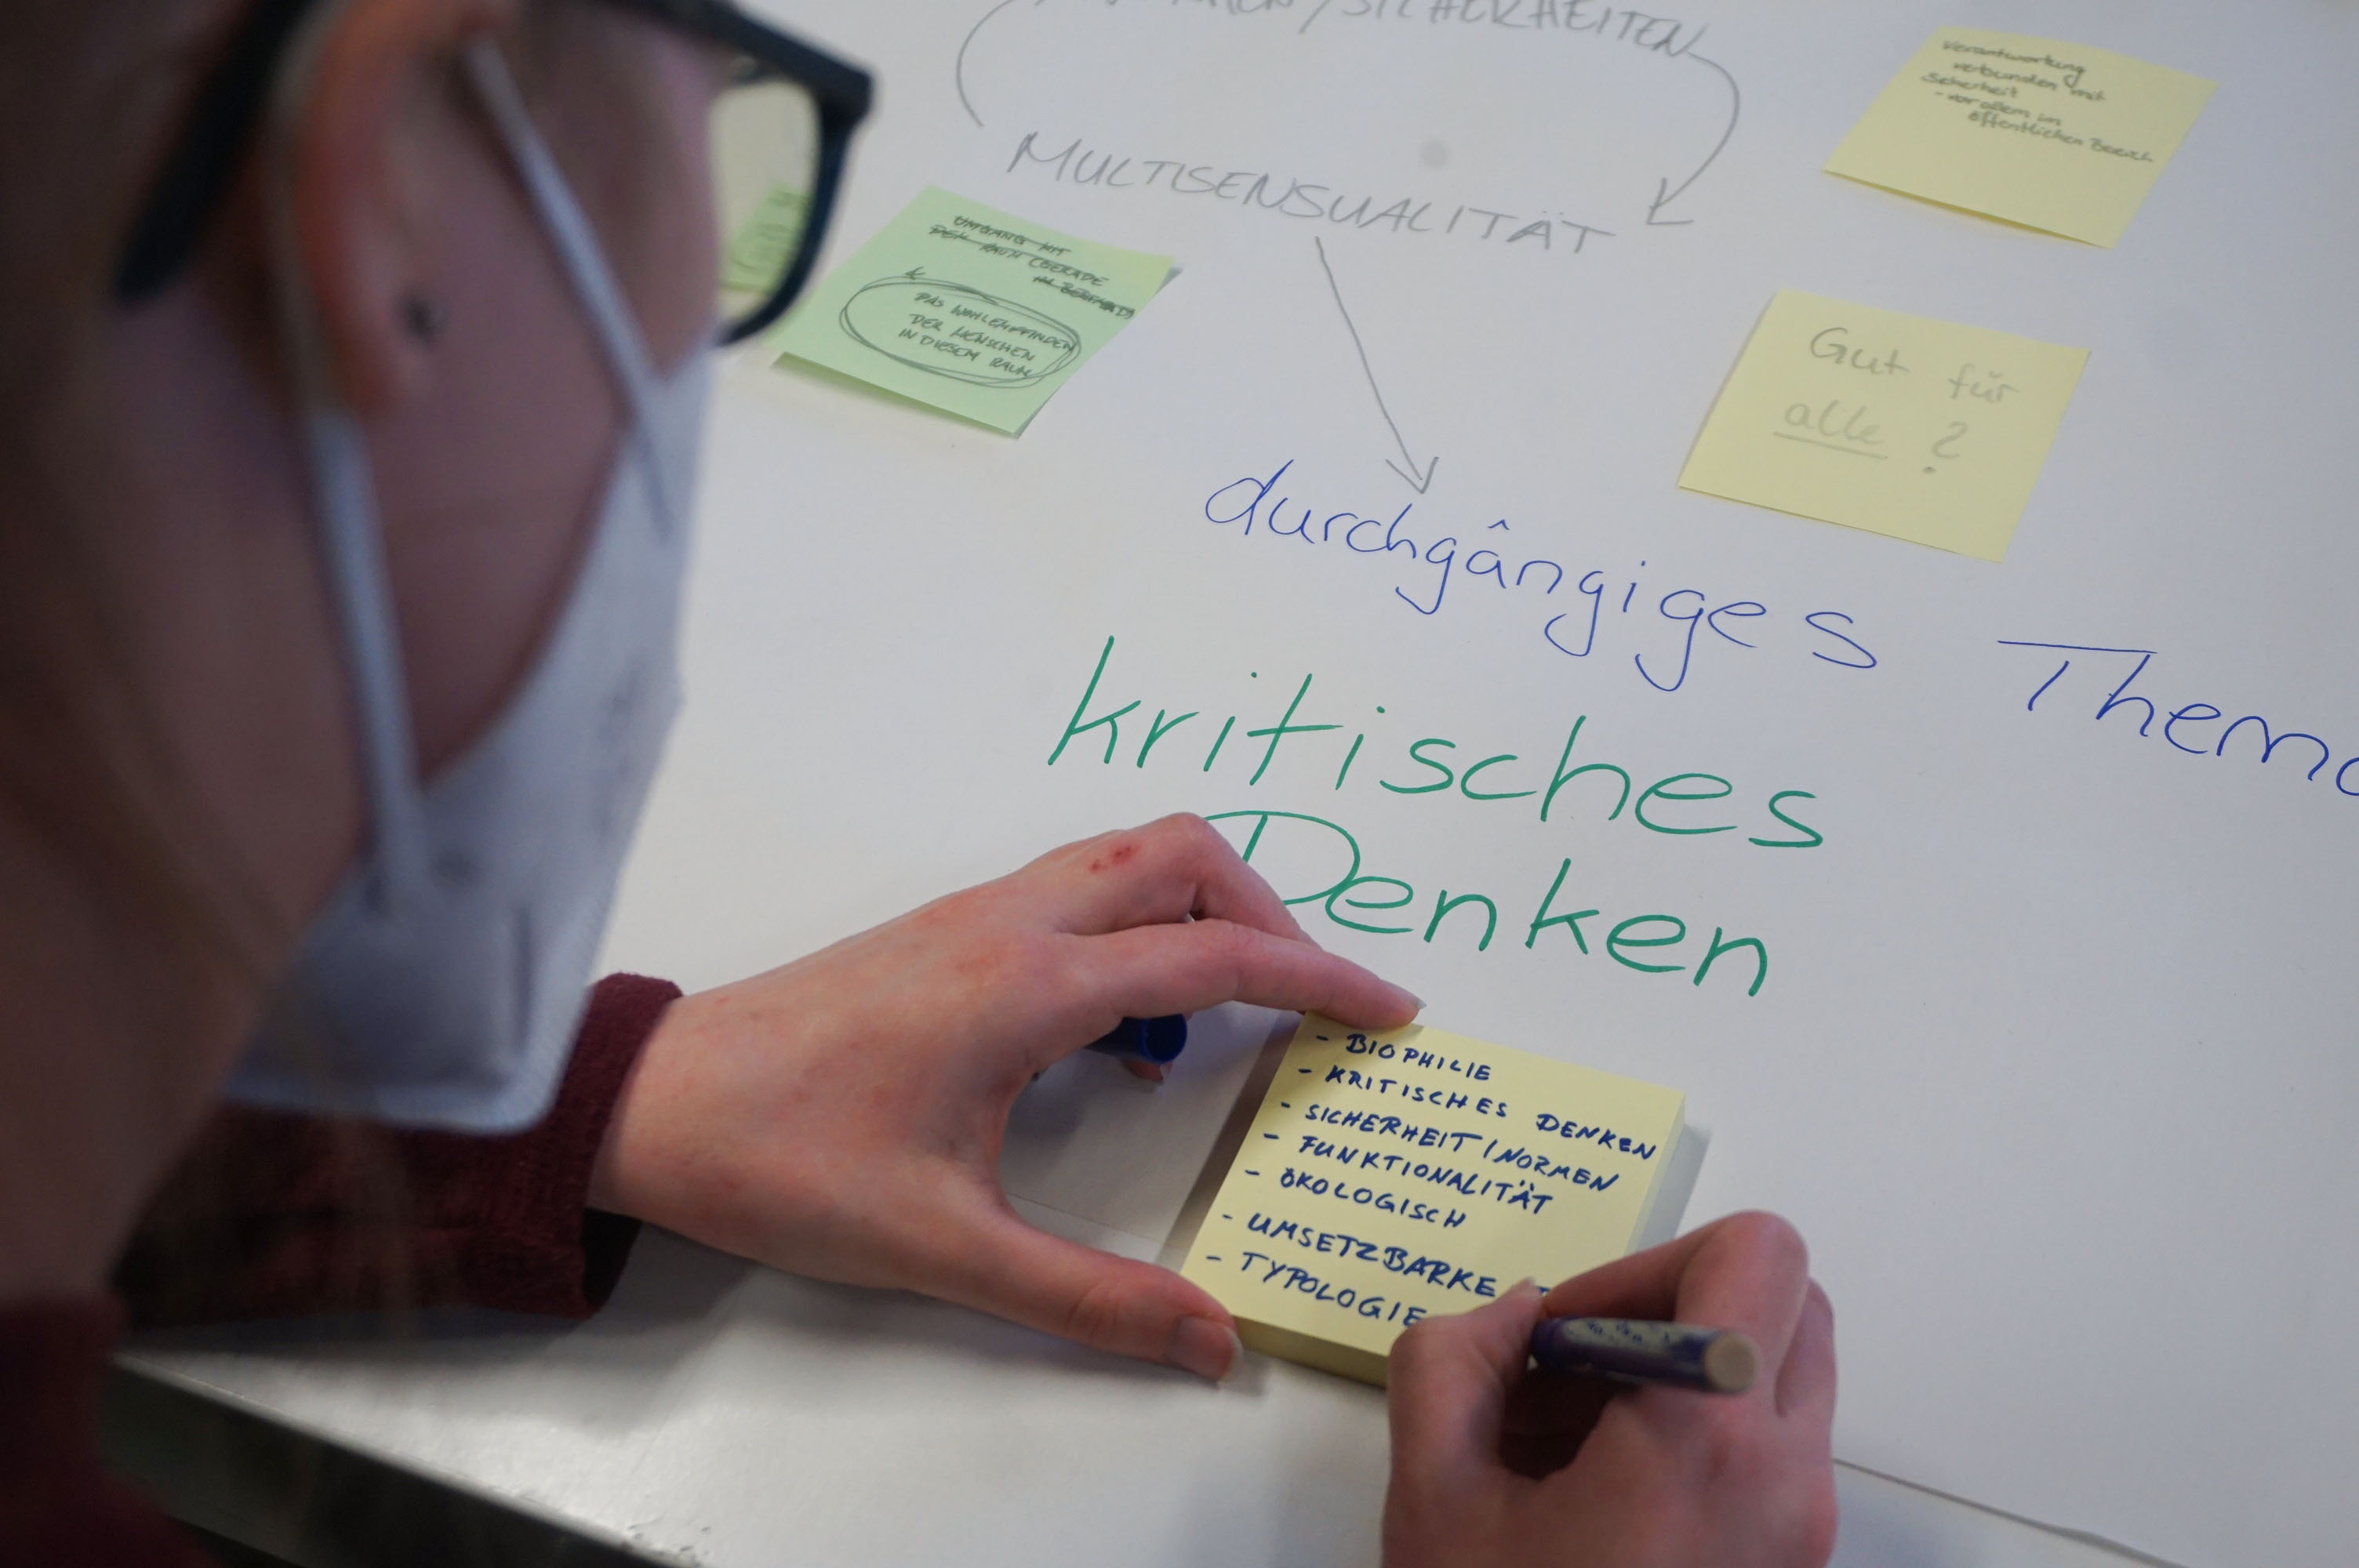 /SICHERHEITEN
MULTISENSUALITÄT
Verantwortung
verbunden mit
Sicherheit
- vor allem im
öffentlichen Bereich
UMGANG MIT
DER RAUM GERADE
DAS WOHLEMPFINDEN
DER MENSCHEN
IN DIESEM RAUM
Gut für
alle ?
durchgängiges Thema
kritisches
Denken
- BIOPHILIE
- KRITISCHES DENKEN
- SICHERHEIT/NORMEN
- FUNKTIONALITÄT
- ÖKOLOGISCH
- UMSETZBARKE
- TYPOLOGIE